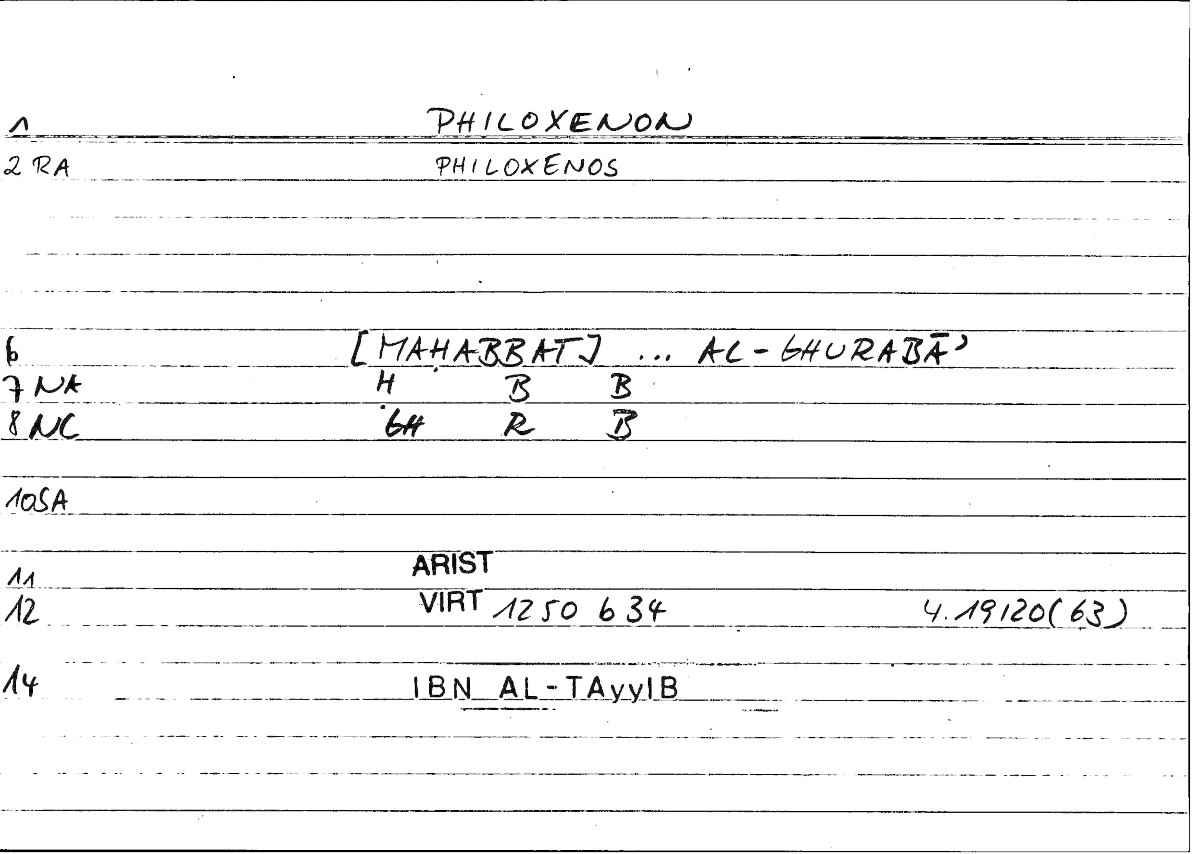 1 PHILOXENON
2 RA PHILOXENOS
6 [MAḤABBAT] ... AL-GHURABĀʾ
7 NA Ḥ B B
8 NC GH R B
10 SA
11 ARIST
12 VIRT 1250 b 34 4.19120(63)
14 IBN AL-TAyyIB